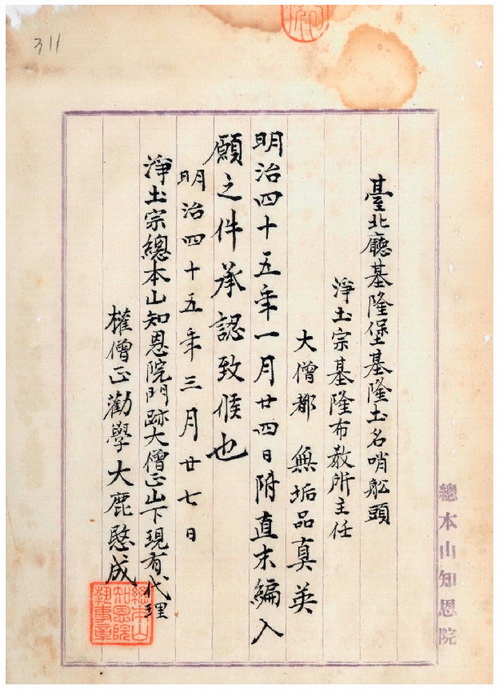 311
臺北廳基隆堡基隆土名哨舩頭
淨土宗基隆布教所主任
大僧都 無垢品真英
明治四十五年一月廿四日附直末編入
願之件承認致候也
明治四十五年三月廿七日
淨土宗總本山知恩院門跡大僧正山下現有代理
權僧正勸學大鹿愍成
總本山知恩院
總本山
知恩院
執事章